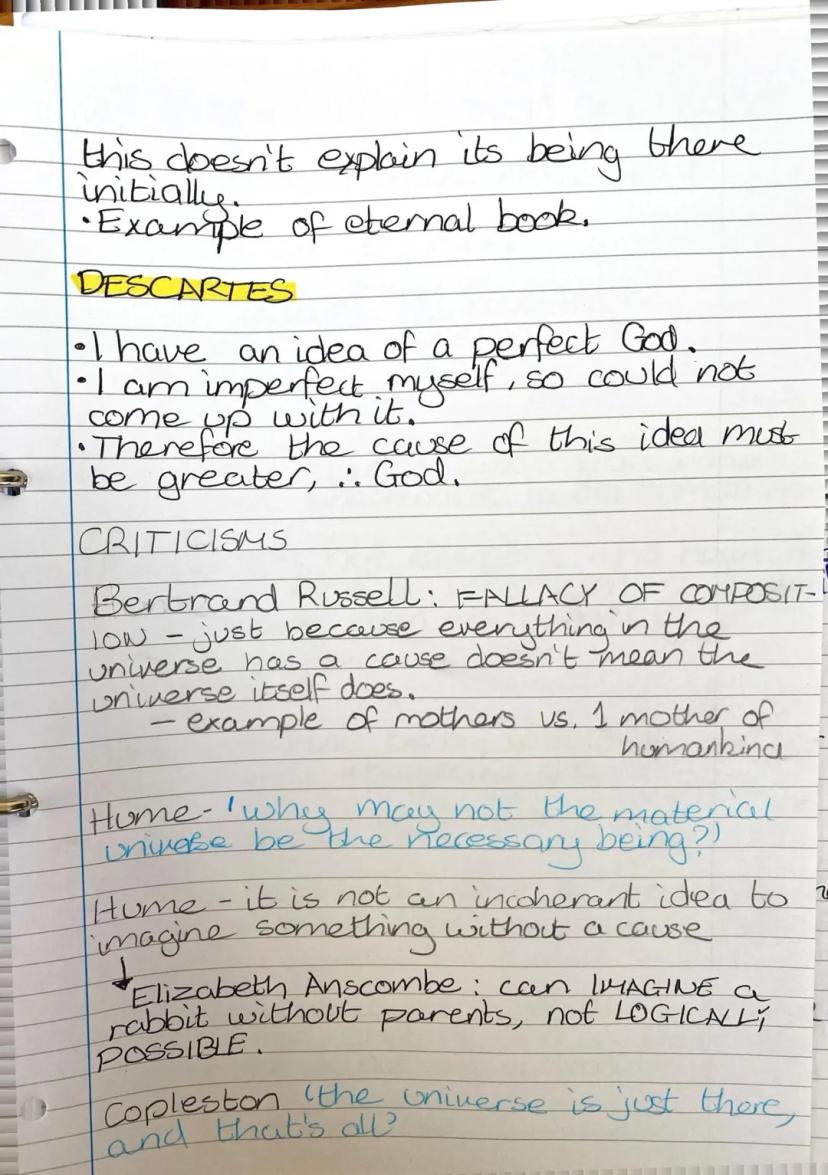 this doesn't explain its being there
initially.
• Example of eternal book.
DESCARTES
• I have an idea of a perfect God.
• I am imperfect myself, so could not
come up with it.
• Therefore the cause of this idea must
be greater, ∴ God.
CRITICISMS
Bertrand Russell: FALLACY OF COMPOSIT-
ION – just because everything in the
universe has a cause doesn't mean the
universe itself does.
– example of mothers vs. 1 mother of
humankind
Hume - 'why may not the material
universe be the necessary being?'
Hume - it is not an incoherant idea to
imagine something without a cause
↓
Elizabeth Anscombe: can IMAGINE a
rabbit without parents, not LOGICALLY
POSSIBLE.
Copleston 'the universe is just there,
and that's all'